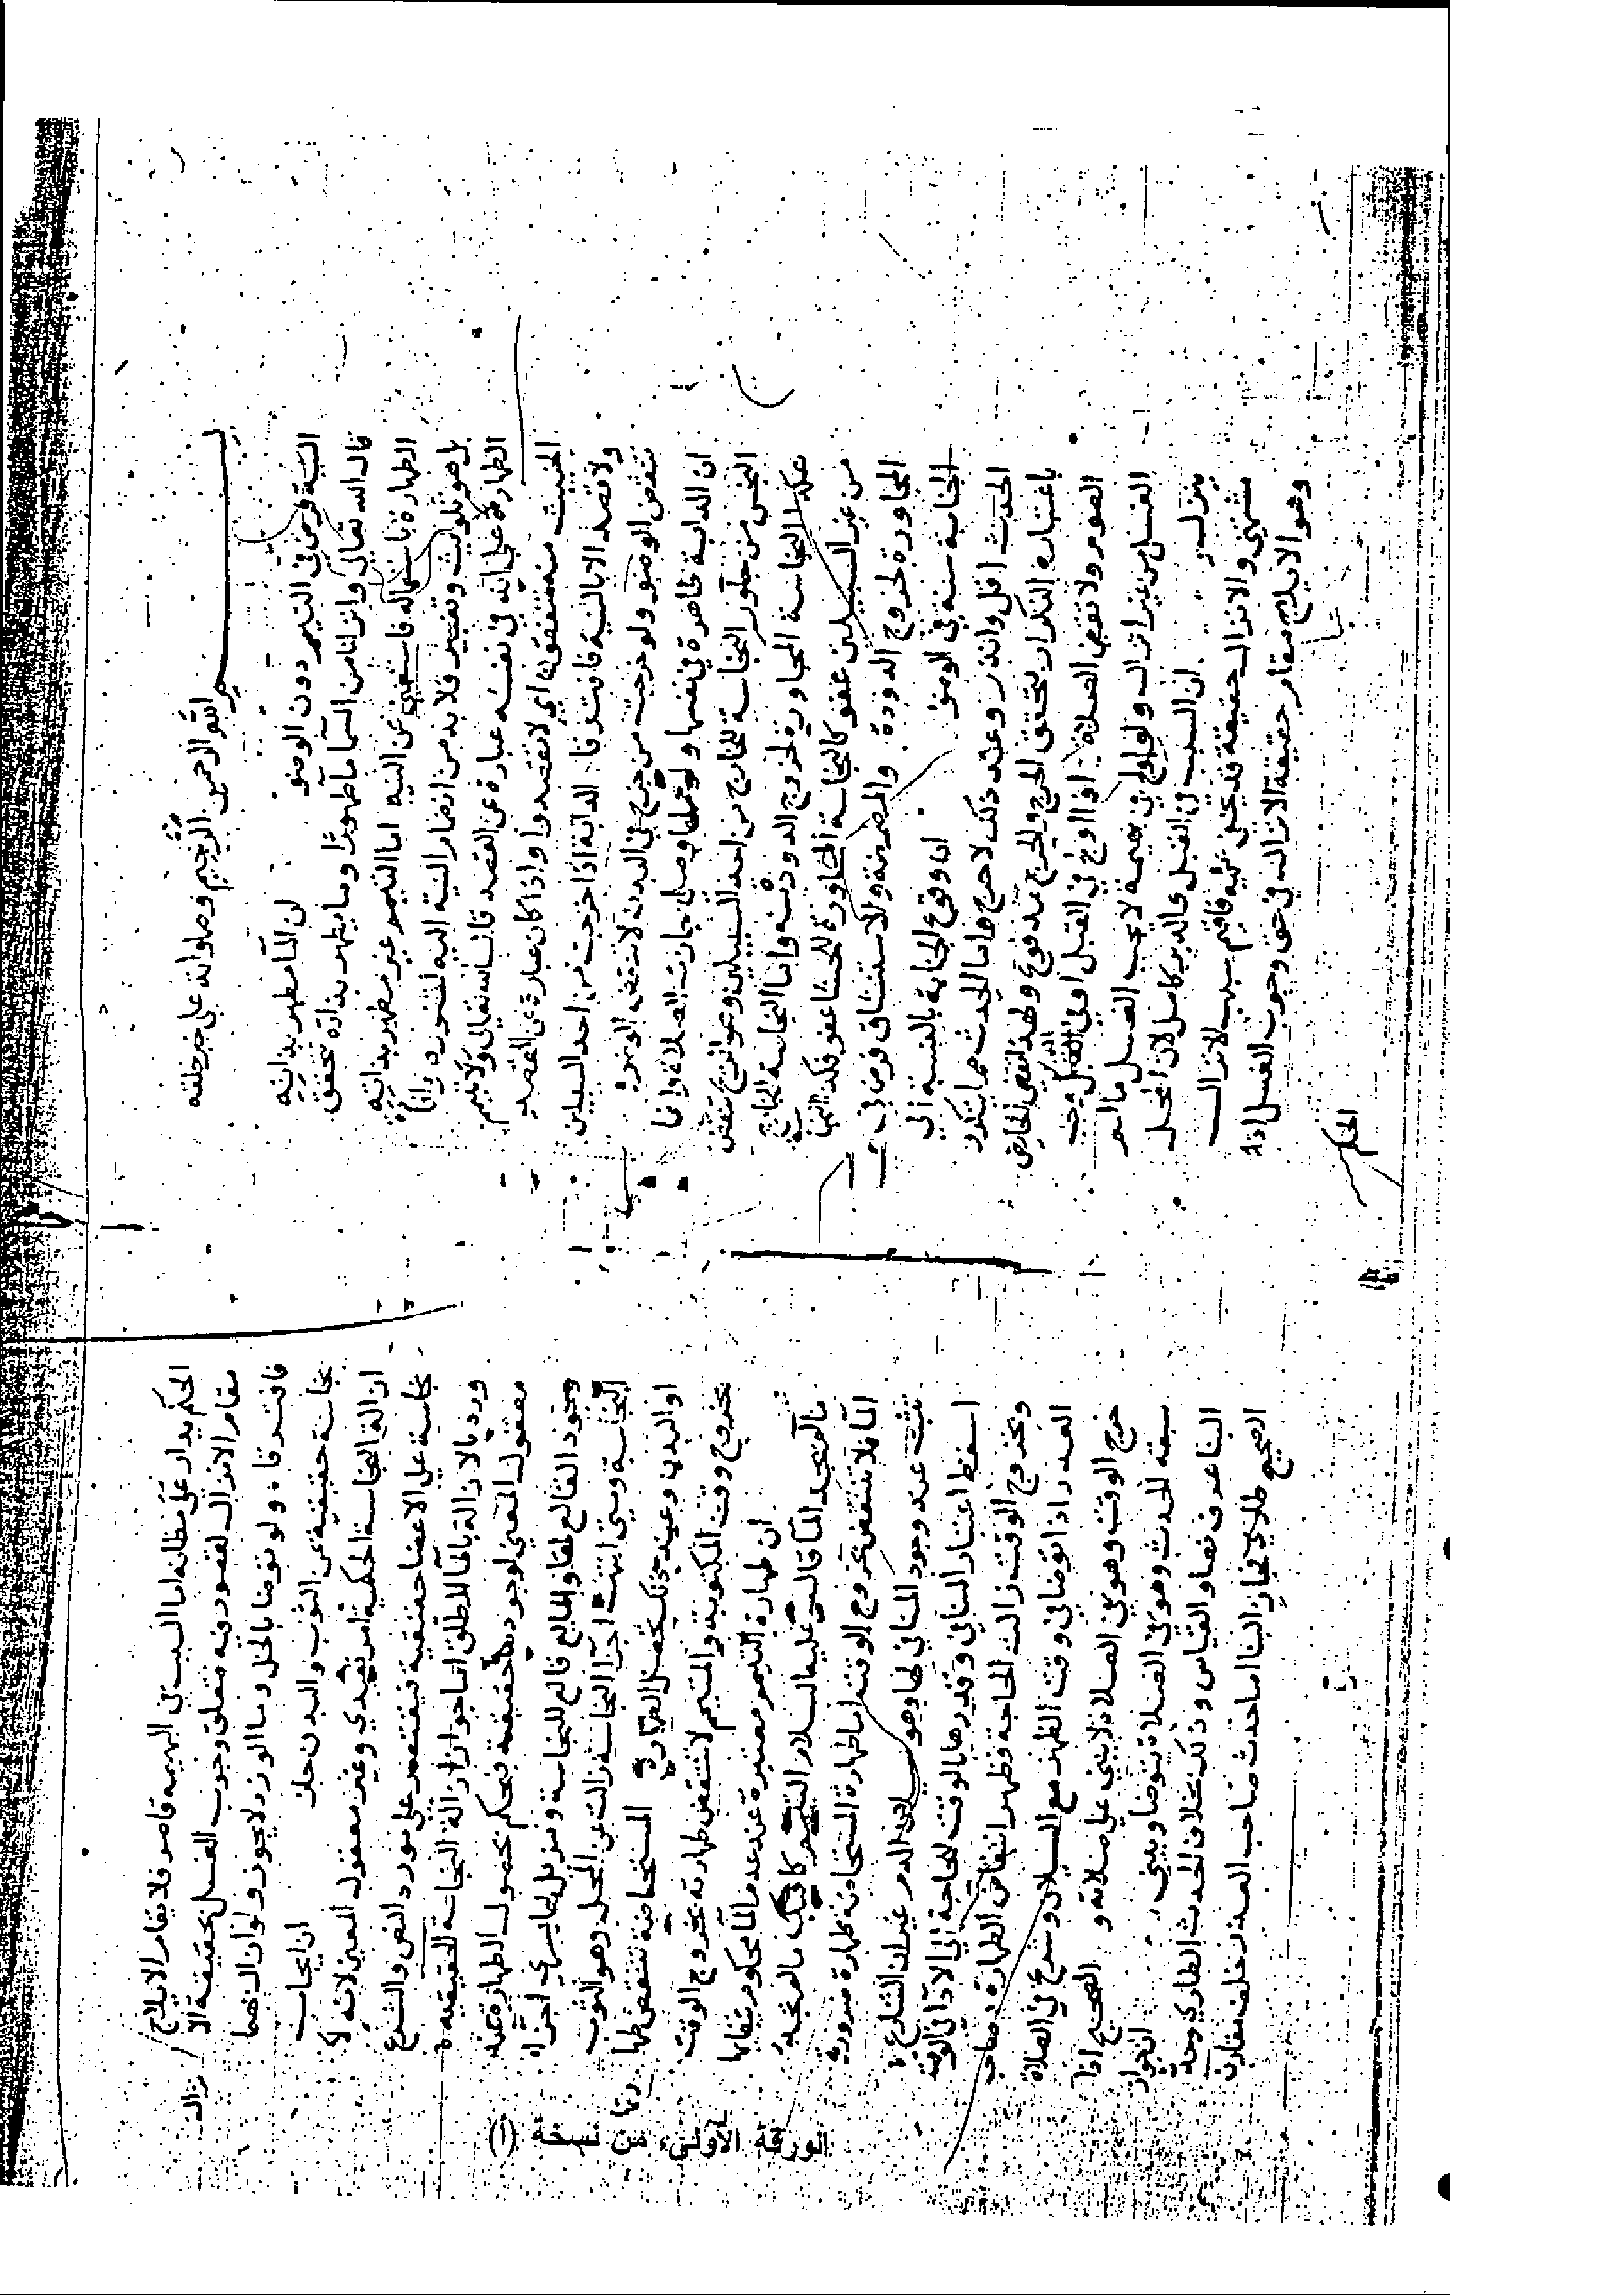 بســـــــم الله الرحمن الرحيم وصلواته على خير خلقه
النية فرض في التيمم دون الوضو لان المآ مطهر بذاته
قال الله تعالى وانزلنا من السمآ مآ طهورا وما يطهر بذاته تحقق
الطهارة باستعماله فاستغنى عن النية اما التيمم غير مطهر بذاته
بل هو تلويث وتغبير فلا بد من انضمار النية اليه
الطهارة في نفسه عبارة عن القصد قال الله تعالى ولا تيمموا
الخبيث منه تنفقون اي لا تقصدوا واذا كان عبارة عن القصد
ولا قصد الا بالنية فافترقا الدابة اذا خرجت من احد السبيلين
تنقض الوضو ولو خرجت من جرح في البدن لا تنقض الوضوء
ان الدابة طاهرة في نفسها ولو حملها وصلى جازت الصلاة وانما
النجس من النجاسة للخارج من احد السبيلين تنقض
النجاسة المجاورة لخروج الدودة وانما النجاسة
من غير السبيلين عفو كالنجاسة المجاورة للحشا عفو فكذا النجاسة
المجاورة لخروج الدودة والمضمضة والاستنشاق فرض في
الجنابة سنة في الوضو ان وقوع الجنابة بالنسبة الى
الحدث اقل واندر وعند ذلك لا حرج واما الحدث مما يتكرر
باعتباره التكرار يتحقق الحرج والحرج مدفوع ولهذا تقضي الحايض
الصوم ولا تقضي الصلاة اذا اولج في القبل او في الدبر وجب
الغسل من غير انزال ولو اولج في بهيمة لا يجب الغسل ما لم
ينزل ان السبب في القبل والدبر كامل لان المحل
مشتهى والانزال حقيقة قد يخفى عليه فاقيم سبب الانزال
وهو الايلاج مقام حقيقة الانزال في حق وجوب الغسل اذ
الحكم
الحكم يدار على مظانه اما السبب في البهيمة قاصر فلا يقام الايلاج
مقام الانزال لقصور فيه متعلق وجوب الغسل بحقيقة الانزال
فافترقا ولو توضا بالخل وما الورد لا يجوز ولو ازال بهما
نجاسة حقيقية عن الثوب والبدن جاز ان ايجاب
ازالة النجاسة الحكمية امر تعبدي وغير معقول المعنى لانه لا
نجاسة على الاعضا حقيقة فيقتصر على مورد النص والشرع
ورد بالازالة بالمآ المطلق اما جواز ازالة النجاسة الحقيقية
معقول المعنى لوجودها حقيقة فيحكم بحصول الطهارة عند
وجود القالع لها والمايع قالع للنجاسة ومزيل لها
النجاسة ومتى انتهت اجزا النجاسة زالت عن المحل وهو الثوب
او البدن وعند ذلك تحصل الطهارة المستحاضة تنتقض طهارتها
بخروج وقت المكتوبة والمتيمم لا تنتقض طهارته بخروج الوقت
ان طهارة التيمم معتبرة عند عدم المآ محكوم ببقايها
ما لم يجد المآ قال عليه السلام التيمم كافيك ما لم تجد
المآ فلا تنتقض بخروج الوقت اما طهارة المستحاضة طهارة ضرورية
تثبت عند وجود المنافي لها وهو سيلان الدم غير ان الشارع
اسقط اعتبار المنافي وقدرها بالوقت للحاجة الى الادآ في الوقت
وبخروج الوقت زالت الحاجة فظهر انتقاض الطهارة صاحب
العذر اذا توضا في وقت الظهر مع السيلان وشرع في الصلاة
خرج الوقت وهو في الصلاة لا يبني على صلاته و الصحيح اذا
سبقه الحدث وهو في الصلاة يتوضا ويبني ان جواز
البنا عرف نصا والقياس وذلك بخلاف الحدث الطاري وحدث
الصحيح طاري فجاز البنا اما حدث صاحب العذر خلف مقارن
الورقة الاولى من نسخة (أ)